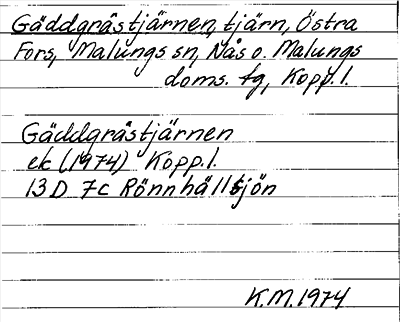 Gäddgråstjärnen, tjärn, Östra
Fors, Malungs sn, Nås o. Malungs
doms. tg, Kopp. l.
Gäddgråstjärnen
ek (1974) Kopp. l.
13 D 7c Rönnhällsjön
K.M. 1974